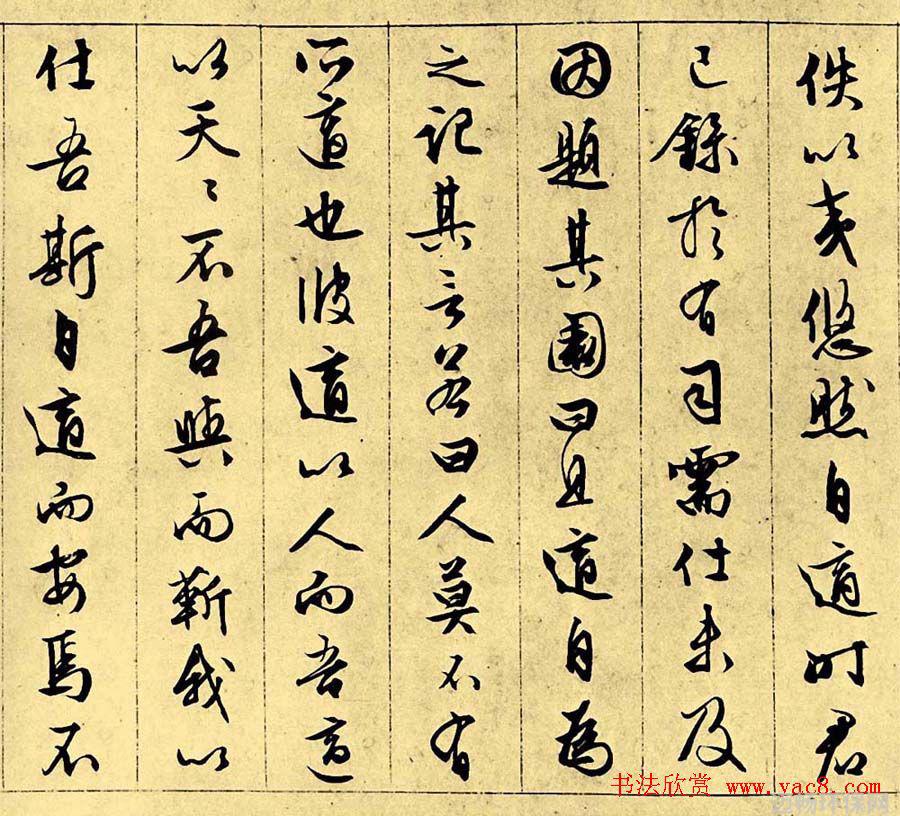 佚以夷悠然自適時君
已錄於有司需仕未及
因題其園曰且適自為
之記其言若曰人莫不有
所適也彼適以人而吾適
以天〻不吾與而靳我以
仕吾斯日適而安焉不
书法欣赏 www.yac8.com